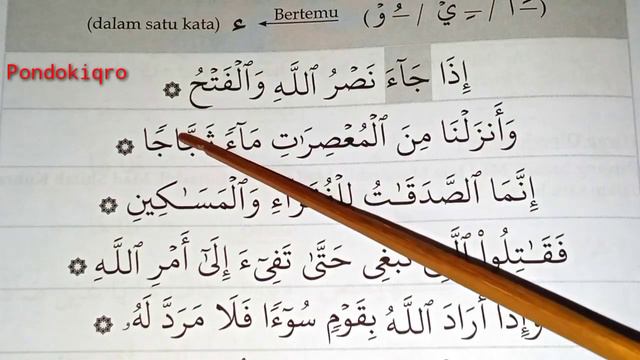 (ـَا / ـِيْ / ـُوْ) Bertemu ء (dalam satu kata)
Pondokiqro
إِذَا جَآءَ نَصْرُ ٱللَّهِ وَٱلْفَتْحُ ۞
وَأَنزَلْنَا مِنَ ٱلْمُعْصِرَٰتِ مَآءً ثَجَّاجًا ۞
إِنَّمَا ٱلصَّدَقَـٰتُ لِلْفُقَرَآءِ وَٱلْمَسَـٰكِينِ ۞
فَقَـٰتِلُوا۟ ٱلَّتِى تَبْغِى حَتَّىٰ تَفِىٓءَ إِلَىٰٓ أَمْرِ ٱللَّهِ ۞
وَإِذَآ أَرَادَ ٱللَّهُ بِقَوْمٍ سُوٓءًا فَلَا مَرَدَّ لَهُۥ ۞